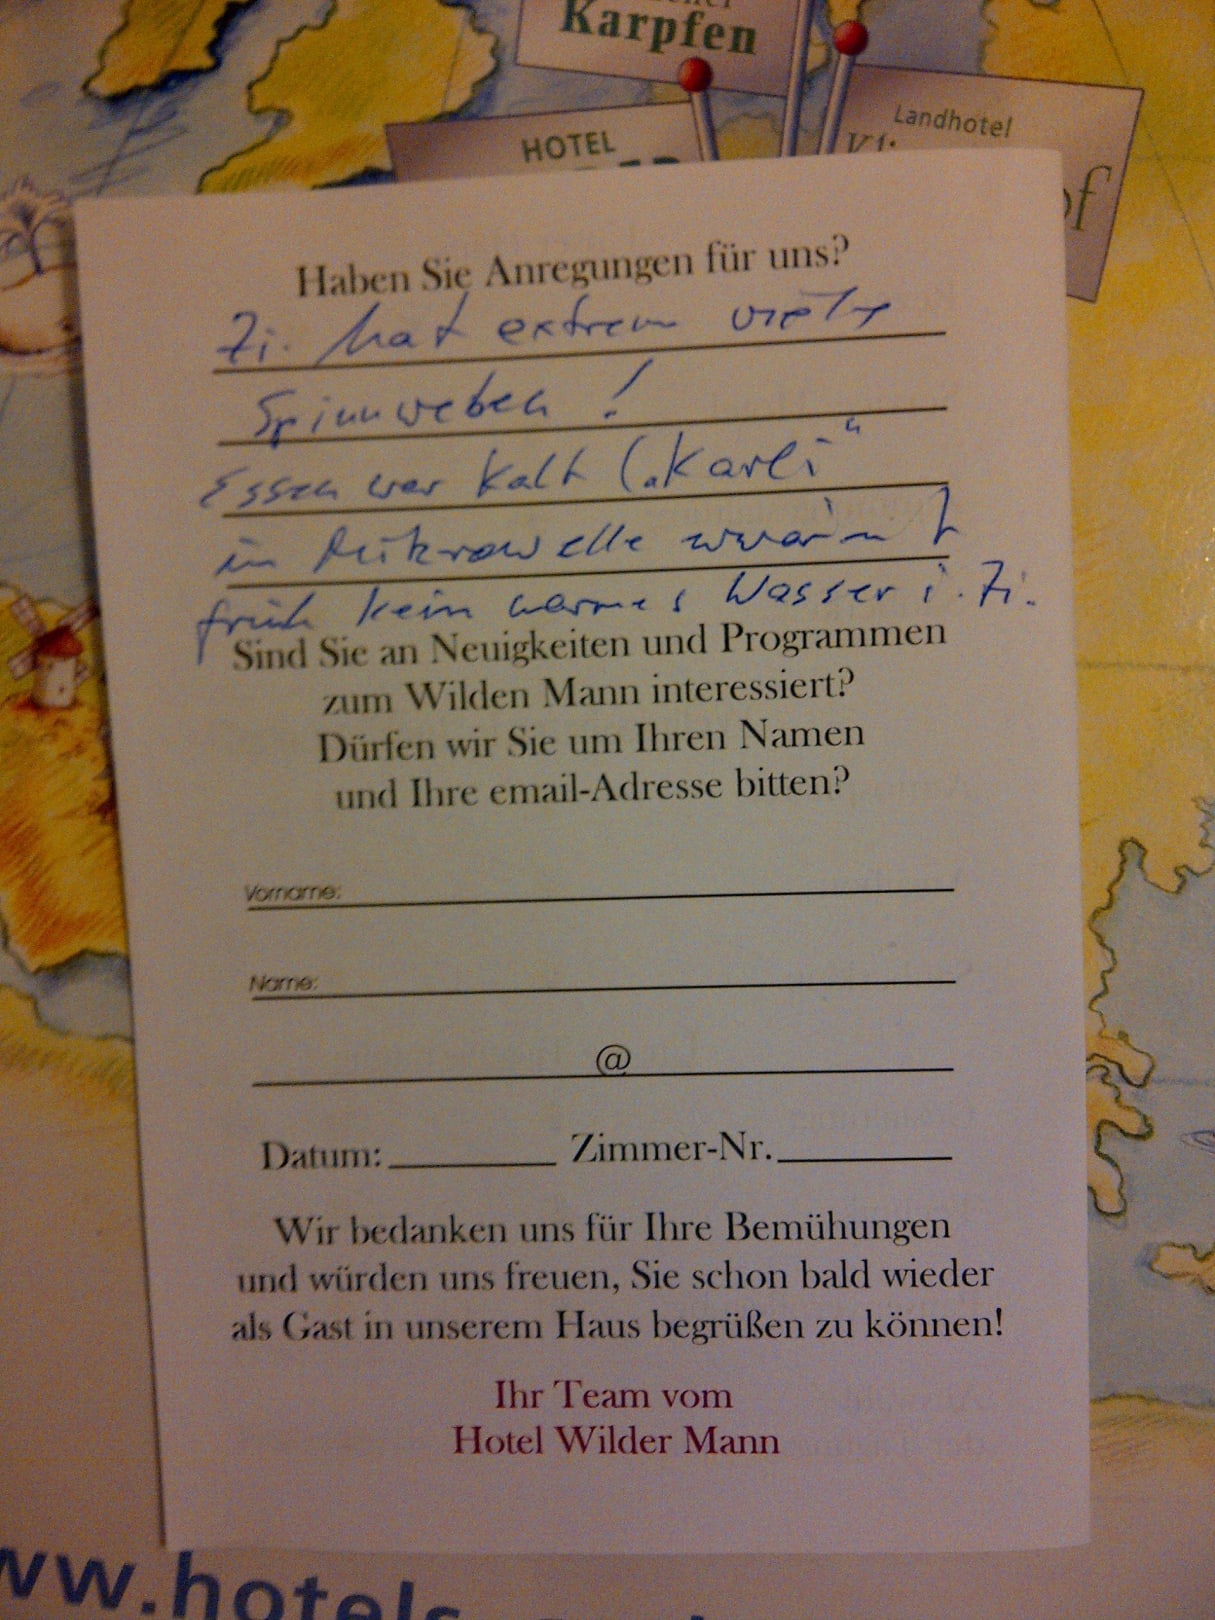 Karpfen
HOTEL
Landhotel
Haben Sie Anregungen für uns?
Zi. hat extrem viele
Spinnweben!
Essen war kalt („Karli“
in Mikrowelle warm
früh kein warmes Wasser i. Zi.
Sind Sie an Neuigkeiten und Programmen
zum Wilden Mann interessiert?
Dürfen wir Sie um Ihren Namen
und Ihre email-Adresse bitten?
Vorname:
Name:
@
Datum: Zimmer-Nr.
Wir bedanken uns für Ihre Bemühungen
und würden uns freuen, Sie schon bald wieder
als Gast in unserem Haus begrüßen zu können!
Ihr Team vom
Hotel Wilder Mann
ww.hotels